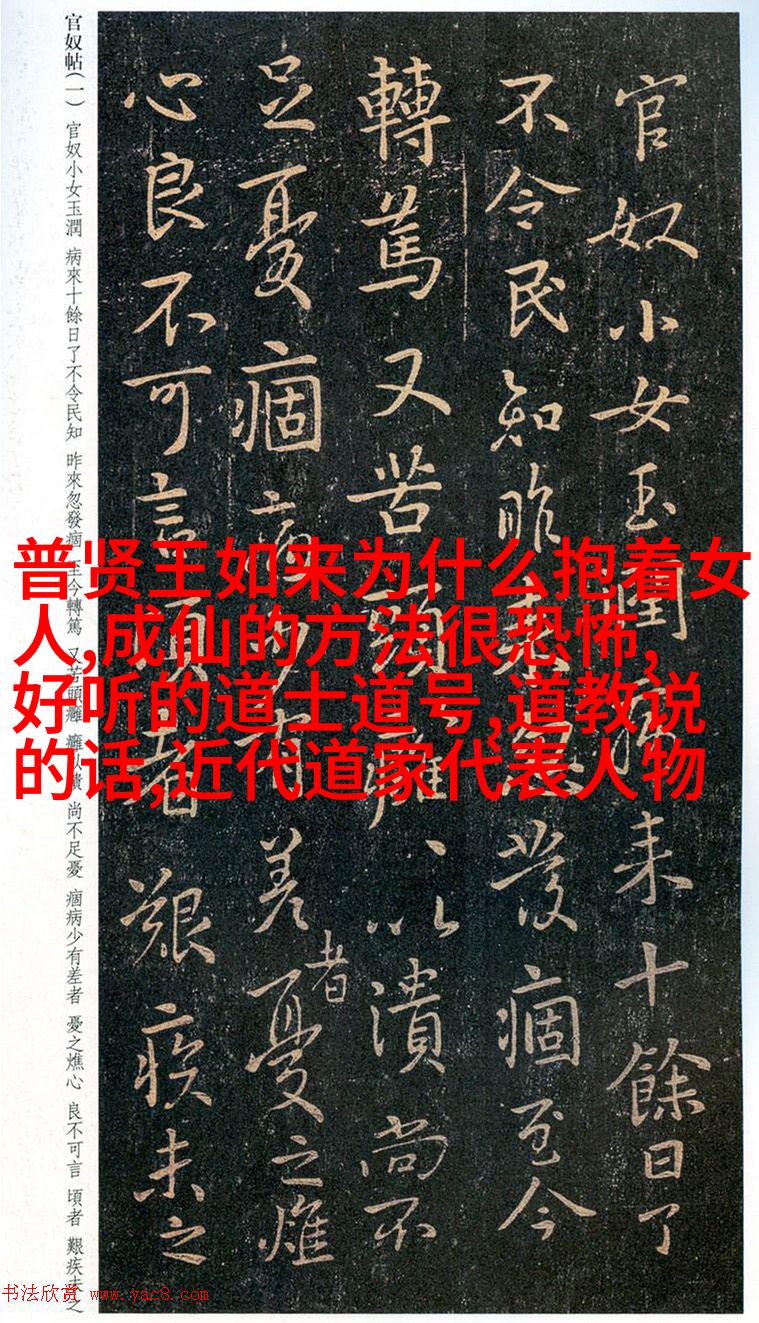 官奴帖(一) 官奴小女玉潤 病來十餘日了不令民知 昨來忽發痼 至今轉篤 又苦頭癰 癰以潰 尚不足憂 痼病少有差者 憂之燋心 良不可言 頃者 艱疾未之
官奴小女玉潤病来十餘日了
不令民知昨来忽發痼至今
轉篤又苦頭癰、以潰尚不
足憂痼病少有差者憂之燋
心良不可言頃者艱疾未之
普贤王如来为什么抱着女
人,成仙的方法很恐怖,
好听的道士道号,道教说
的话,近代道家代表人物
书法欣赏 www.yac8.com